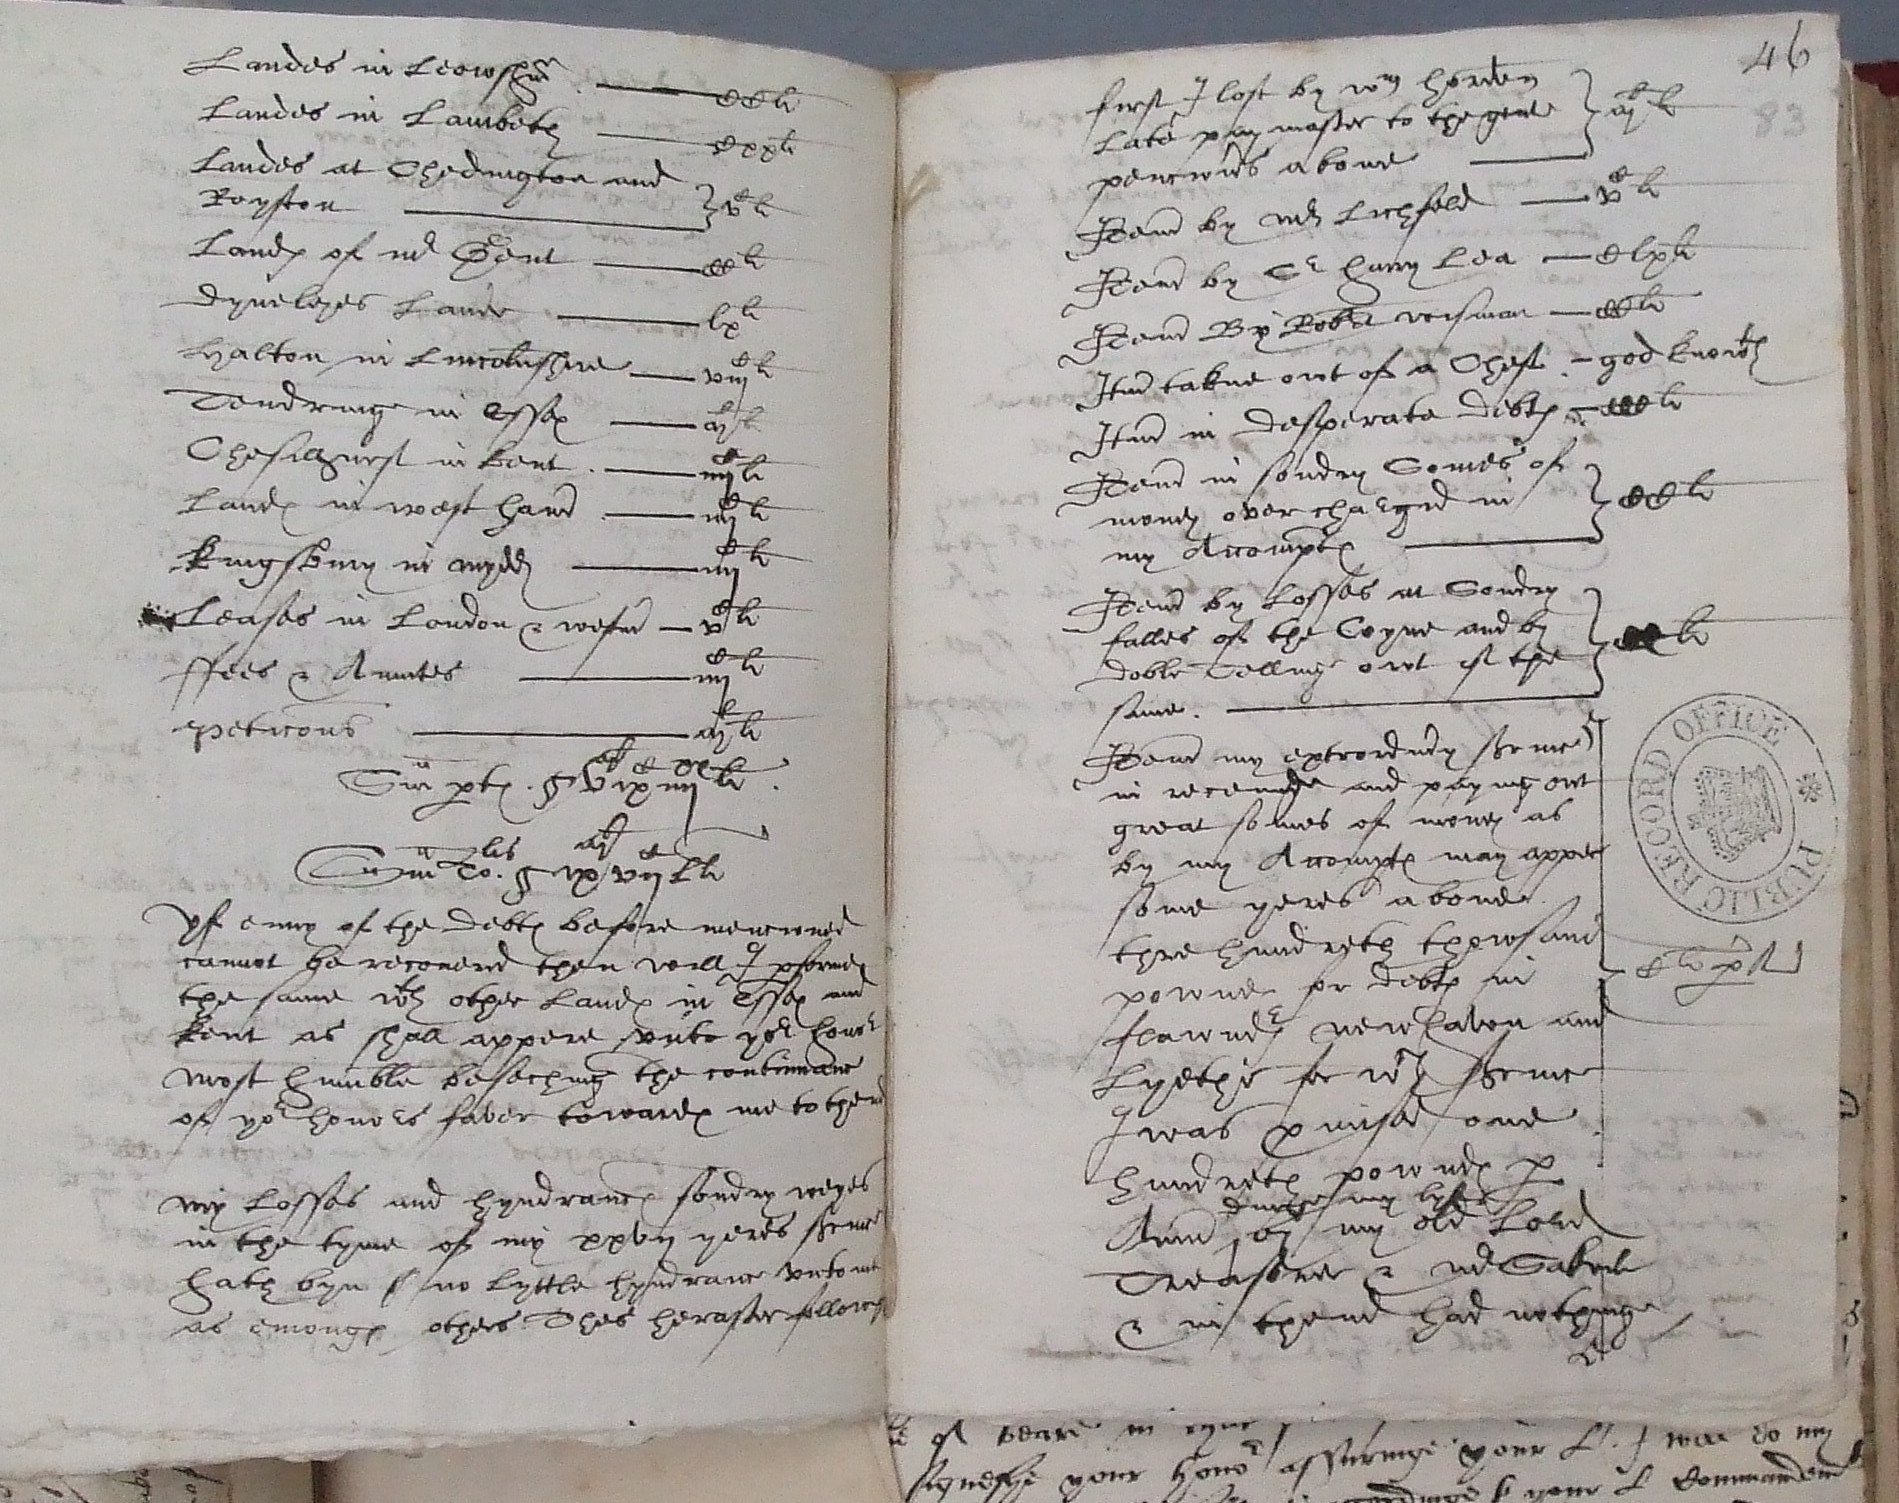 Landes in Lewsh'm
CCli
Landes in Lambeth
Cxxli
Landes at Chedington and
Royston
vC li
Landes of mr Gent
CC li
dyneleyes Lande
lxli
Halton in Lincolnshire
viijC li
Tendringe in Essex
Chesilhurst in kent
iijC li
Landes in west ham
iijC li
kingsbury in midd
iijC li
Leases in London & westm
vC li
ffees & Annites
iijC li
peticons
Sm pt
Sm to.lis
yf enny of the debtes before mencioned
cannot be recovered then will I pforme
the same wth other Landes in Essex and
kent as shall appere vnto yor honor
most humble beseching the contynuance
of yor honors faver towardes me to thend
my Losses and hyndrances sondry weyes
in the tyme of my xxvij yeres servic
hath byn no Lyttle hyndrance vnto me
as emonges others Thes herafter followi
46
83
first I lost by wm horden
Late paymaster to the gent
pencioners above
Item by mr Lichfeld
vC li
Item by Sr harry Lea
Clxli
Item By Robt wisman
CCli
Itm takne owt of a Chest
god knowth
Itm in desperate debtes
CCCli
Item in sondry Somes of
money over charged in
my Accomptes
CCli
Item by Losses at Sondry
falles of the Coyne and by
doble Telling owt of the
same.
Item my extrordinary service
in receving and paying owt
great somes of money as
by my Accomptes may apper
some yeres above
thre hundreth thowsand
powndes for debtes in
flawnders newhaven and
Lyethe for wch service
I was pmised one
hundreth powndes p
during my lyfe
Anm by my old Lord
Treasorer & mr Sakvile
& in thend had nothing
Cli p A
PUBLIC RECORD OFFICE
of yeare in
signefye your honor assuringe your L. I wil do my
your L Commandem